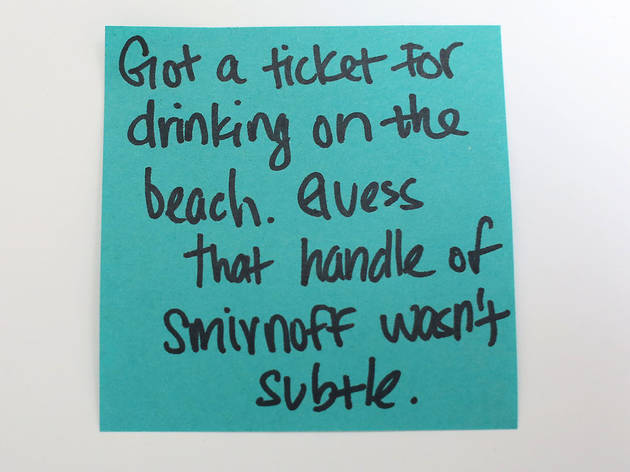 Got a ticket for
drinking on the
beach. Guess
that handle of
Smirnoff wasn't
subtle.